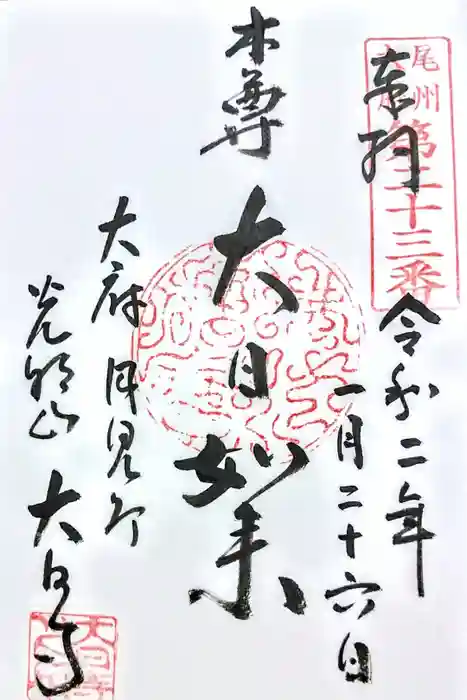 奉拝
尾州
大府
第二十三番
令和二年
一月二十六日
本尊
大日如来
大府 月見町
光明山 大日寺
大日寺